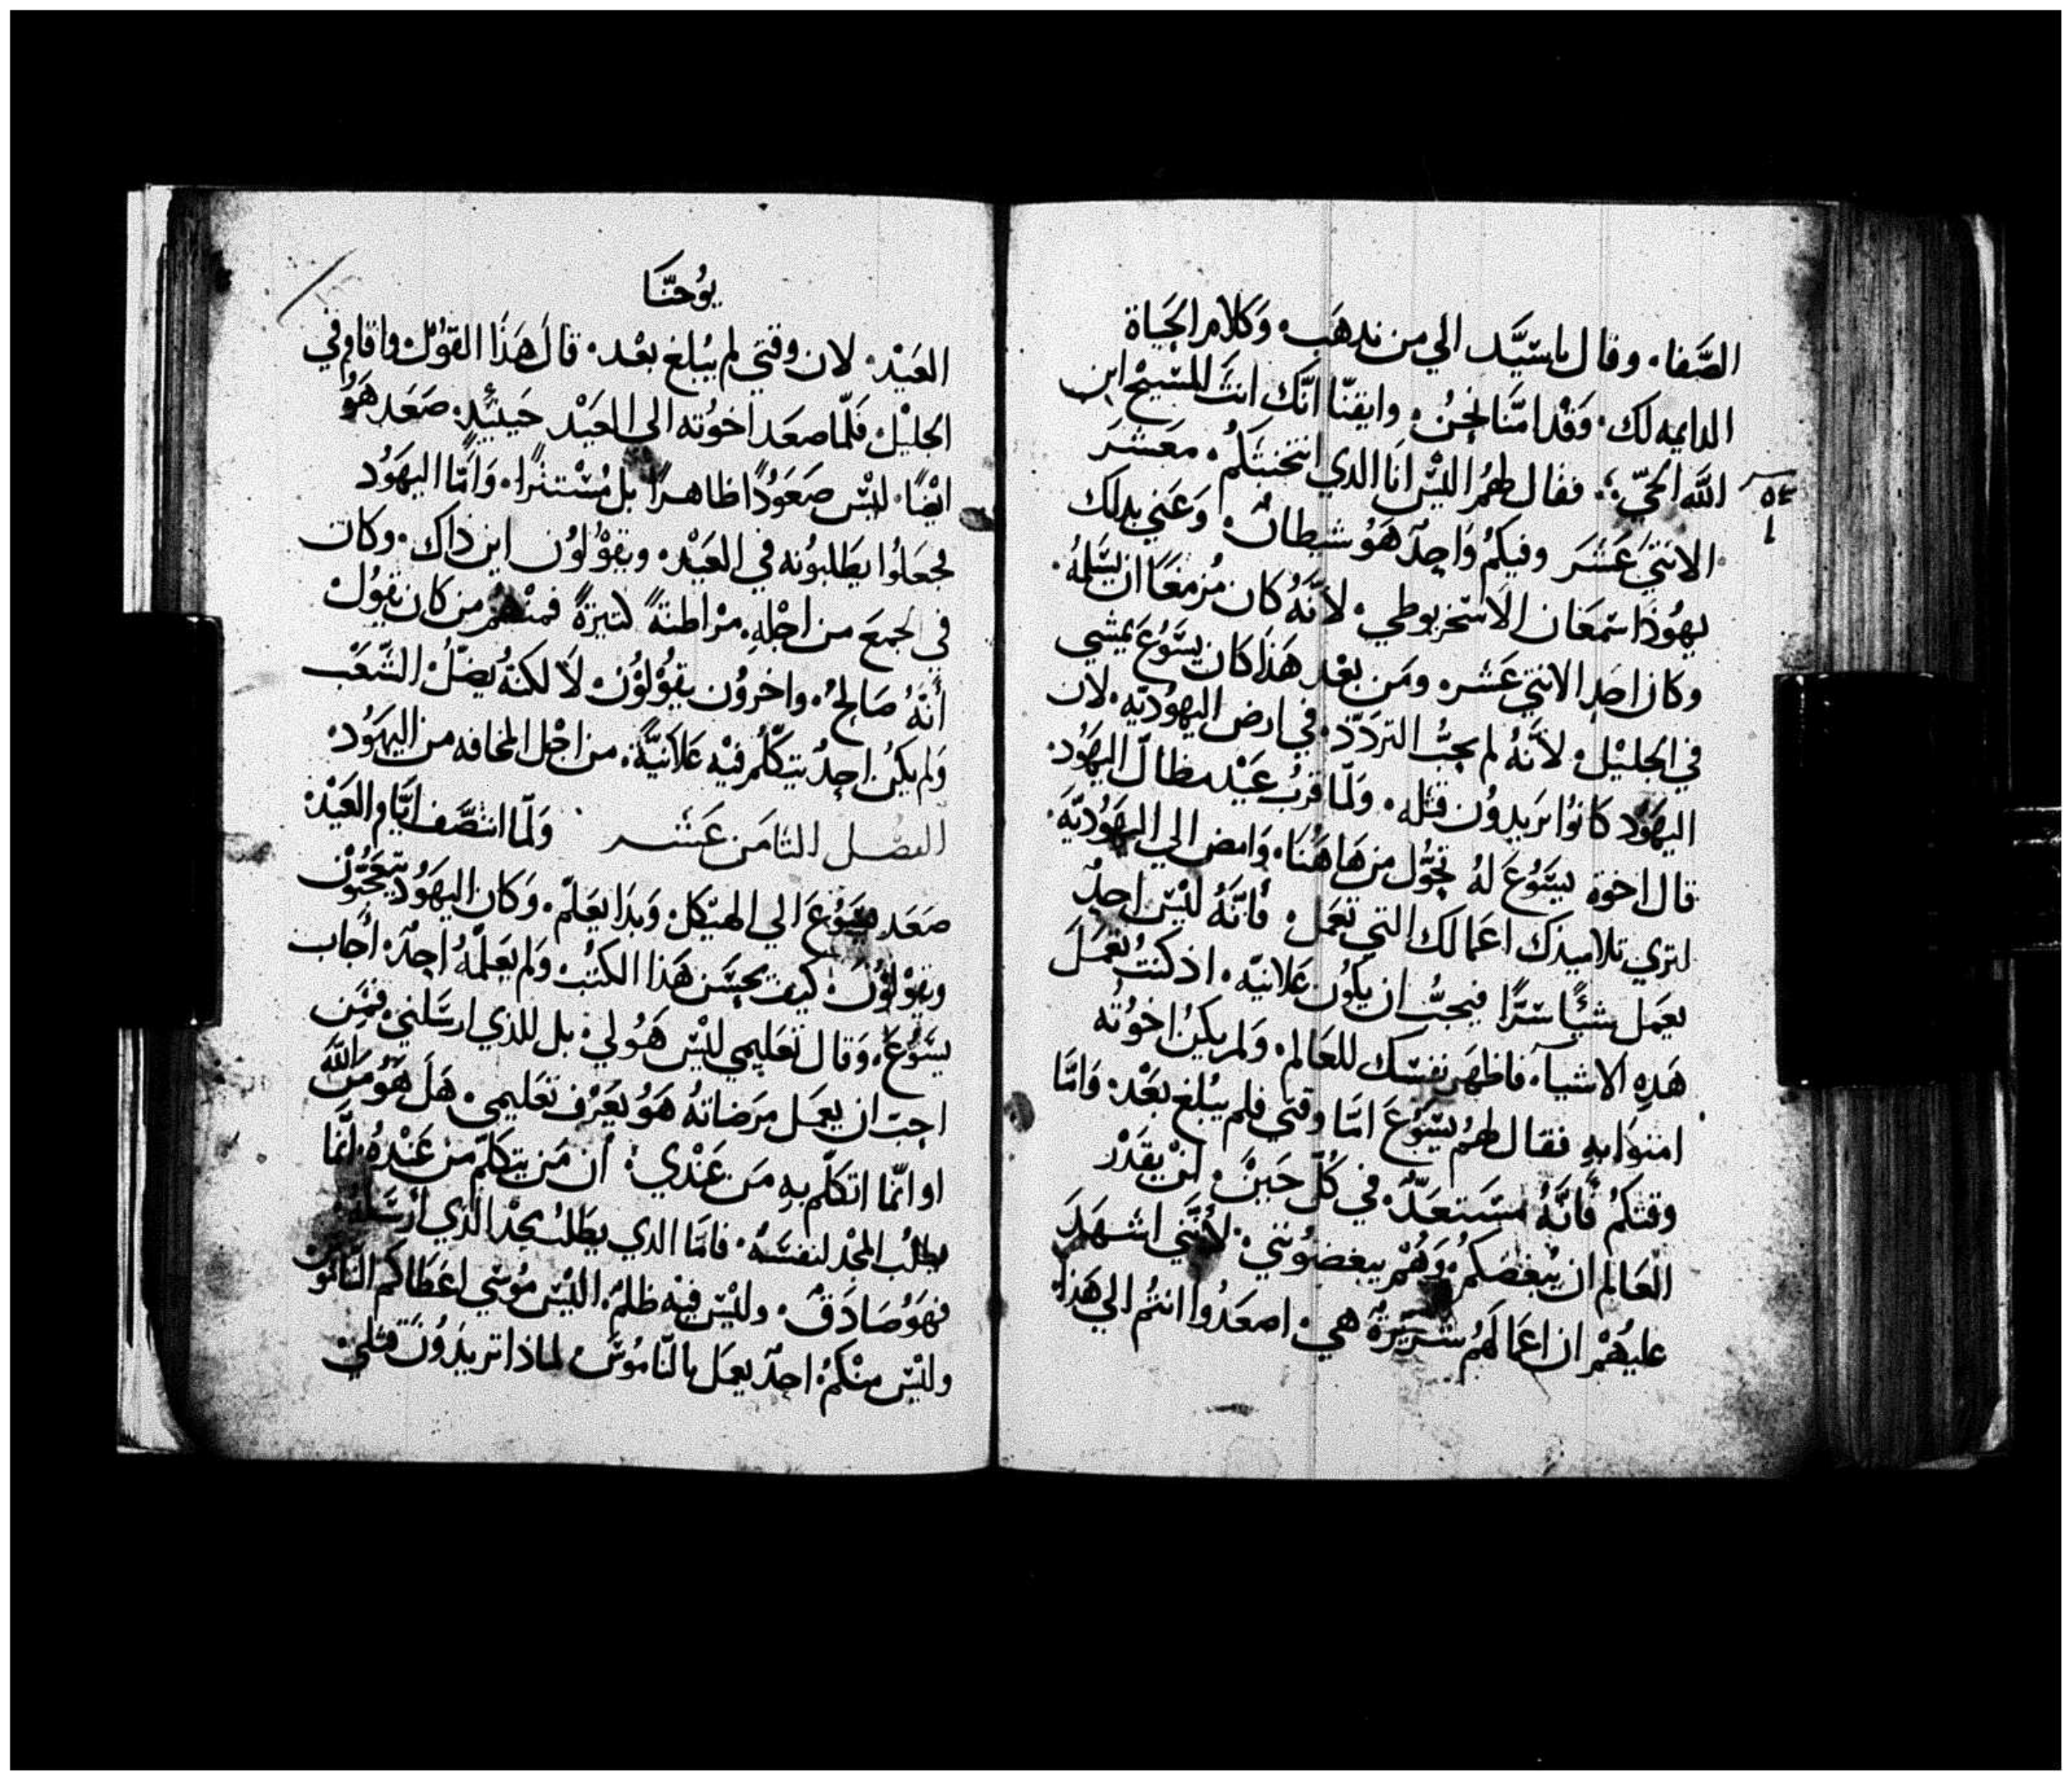 الصَّفا، وقال ياسيَّد الي من ندهَب، وَكلام الحَياة
الدايمه لك، وَقدْ امنَّا نحنُ، وايقنّا انّك انتَ المسَيحْ ابن
اللَّه الحيّ؛ فقال لهمُ اليسْ انَا الدي انتخبتكمُ، معَشرَ
الاثنيَ عَشَرَ وفيكمُ وَاحِدٌ هَوُ شيطانٌ، وَعَني بدلك
يهوُدَا سَمعَان الاسْخريوطي، لانَّهُ كان مُزمعًا ان يسَلمهُ،
وكان احَدِ الاثني عَشر، ومَن بعْد هَذَا كان يسَّوُعَ يمشي
في الجليْل، لانَّهُ لم يحبُّ التردّد، في ارض اليهوُديّه، لان
اليهَوُد كانوُا يرَيدوُن قتله، وَلمّا قربُ عَيْد مظال اليهَوُد،
قال اخوة يسَّوُعَ لهُ تحوَّل من هَا هُنَا، وَامض الي اليهَوُديّهَ،
لتري تلاميدَك اعَمالك التي تعَمل، فأنَّهُ ليْسَ احدٌ
يعَمل شيًّا سَرًّا فيحبُّ ان يكوُن عَلانيّه، اد كنتُ تعَمَلَ
هَدِه الاشياَ، فاظهَر نفسَك للعَالم، وَلم يكنْ اخوُته
امنوُا بهِ فقال لهمُ يسَّوُعَ امَّا وقتي فلم يبُلغ بعَدْ، وَامَّا
وقتكمُ فأنَّهُ مسَتعَدٌّ، في كُلّ حَينٍ، لنْ يقَدْر
العَالم ان يبُغضكمُ، وَهُمْ يبغضوُنني، لأننَّي اشهَدَ
عليهُمْ ان اعَمالهَمُ شرّيرَةٌ هي، اصعَدُوا انتُم الي هَدا
٥٤
١
يوُحنَّا
العَيْد، لان وقتي لم يبُلغ بعْد، قال هَذَا القوُلْ، واقام في
الجليْل، فلمّا صعَد اخوُته الي العَيْد حَينيُدٍ، صَعَد هَوُ
ايْضًا، ليْسَ صَعَوُدًا ظاهرًا بل مُسْتترًا، وَامَّا اليهَوُد
فجعَلوُا يطَلبوُنه في العَيْد، ويقوْلوُن اين داك، وكان
في الجمعَ من اجْلهِ، مرْاطنةً كتيرَةً فمنْهمُ من كان يقوُلْ
أنَّهُ صَالحٌ، واخروُن يقوُلوُنْ، لاَ لكنّهُ يُضلُّ الشّعَب
وَلم يكنُ احدٌ يتكلّمُ فيْه عَلانيَّةً، من اجْل المخافه من اليهَوُد،
الفصْل الثامَن عَشر وَلمّا انتصَّف ايَّام العَيْد،
صَعَد يسَوُعَ الي الهيْكل، وَبدَا يعَلّم، وَكان اليهَوُد يتعَجّبوُن
ويقوْلوُن، كيف يحسَن هَذا الكتُب، وَلم يعَلّمهُ احدٌ، أجاب
يسَّوُعَ، وَقال تعَليمي ليْسَ هَوُ لي، بل للذي ارسَلني، فمَن
احبّ ان يعَمَل مرَضاتهُ هَوُ يعَرْف تعَليمي، هَل هَوُ منَ اللَّه
او انمّا اتكلّم بهِ مَن عَنْدي، أن مَن يتكلّم منَ عَنْدهُ، انَّما
يطلبُ المجْد لنفسَهُ، فامَّا الدي يطَلبُ مجْد الذي ارْسَلهُ،
فهَوُ صَادَقٌ، وليْسَ فيْه ظلمٌ، اليْسَ موُسَي اعَطَاكمُ النّاموُسَ
وليْسَ منْكمُ احدٌ يعَمَل بالنّاموُسَ، لماذا ترَيدُونَ قتلي،